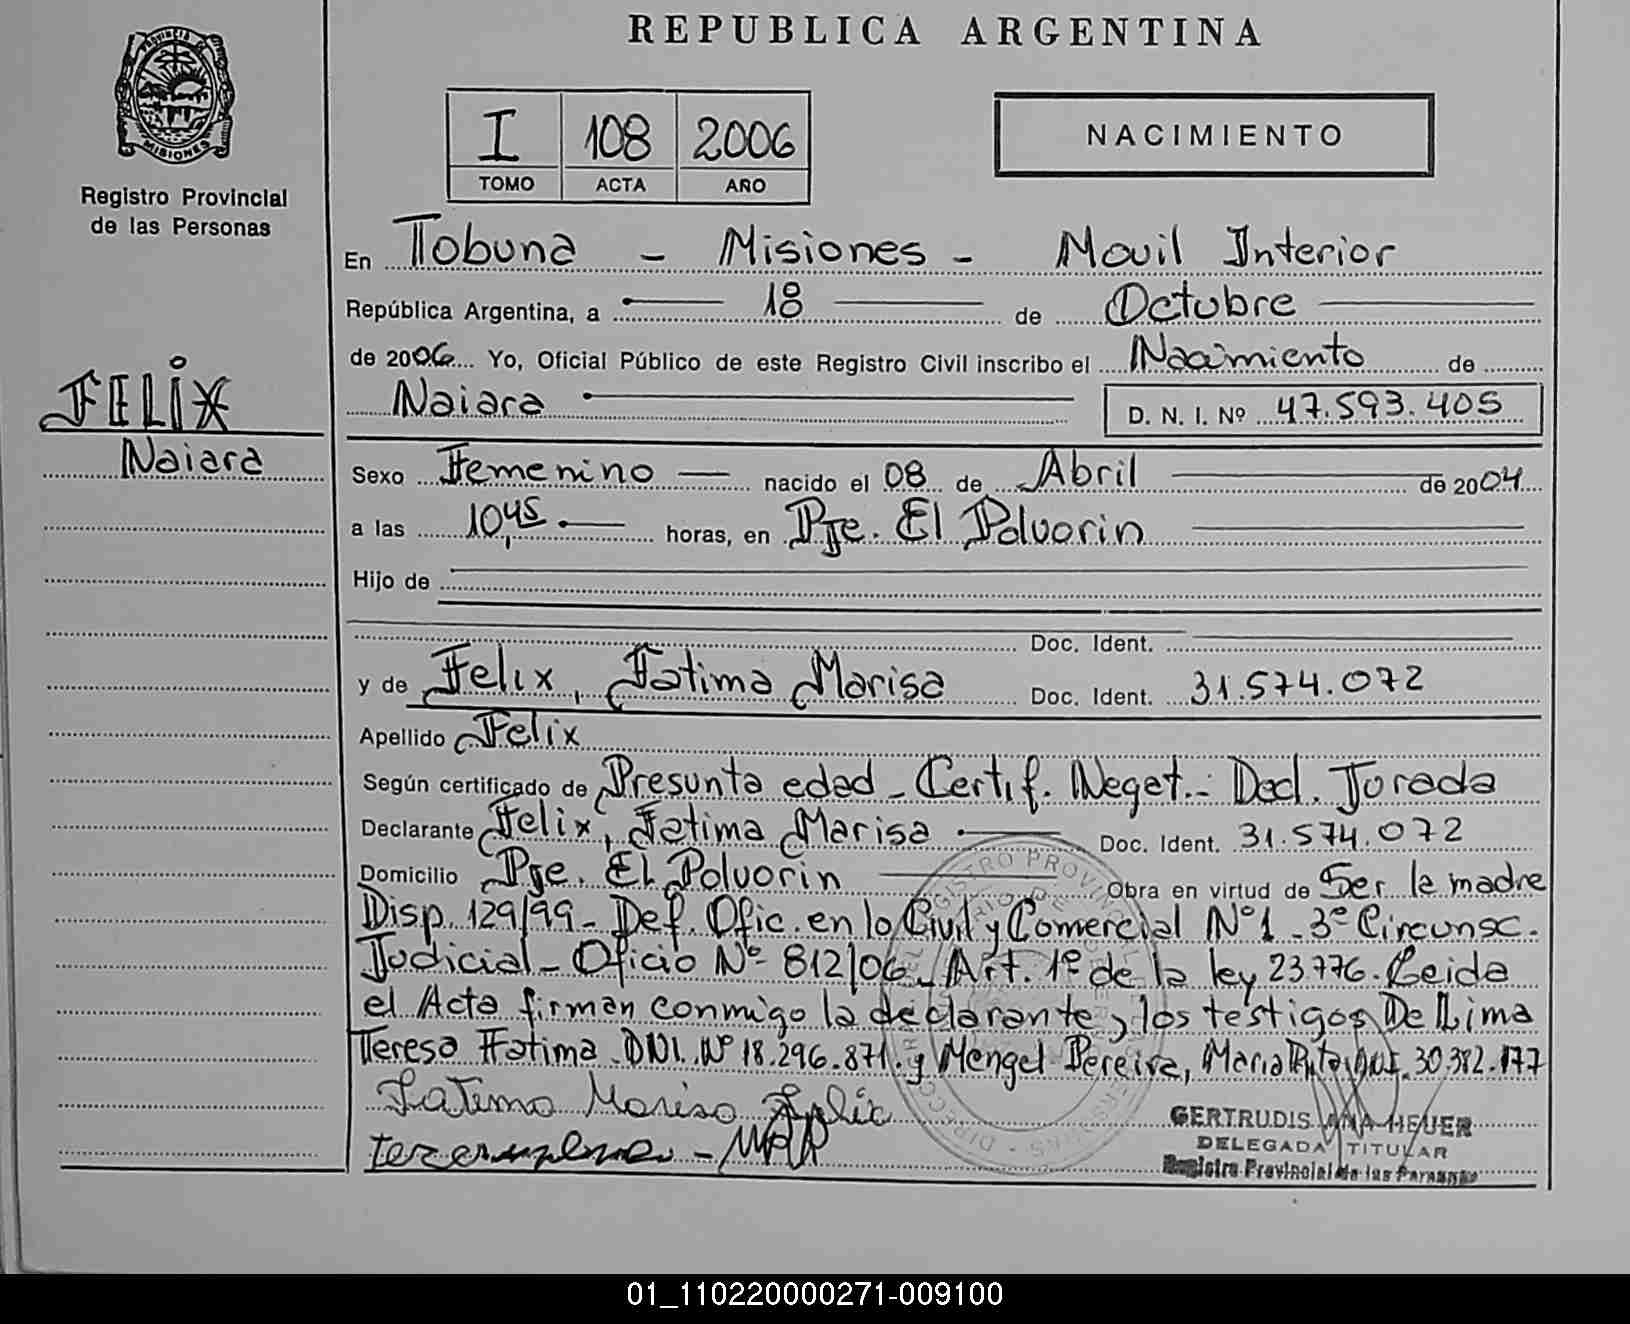 PROVINCIA DE
MISIONES
Registro Provincial
de las Personas
REPUBLICA ARGENTINA
I 108 2006
TOMO ACTA AÑO
NACIMIENTO
En Tobuna - Misiones - Movil Interior
República Argentina, a 18 de Octubre
de 2006 Yo, Oficial Público de este Registro Civil inscribo el Nacimiento de
Naiara D. N. I. Nº 47.593.405
FELIX
Naiara
Sexo Femenino nacido el 08 de Abril de 2004
a las 10,45 horas, en Pje. El Polvorin
Hijo de
Doc. Ident.
y de Felix, Fatima Marisa Doc. Ident. 31.574.072
Apellido Felix
Según certificado de Presunta edad - Certif. Negat.- Decl. Jurada
Declarante Felix, Fatima Marisa Doc. Ident. 31.574.072
Domicilio Pje. El Polvorin Obra en virtud de Ser la madre
Disp. 129/99 - Def. Ofic. en lo Civil y Comercial Nº 1 - 3º Circunsc.
Judicial - Oficio Nº 812/06 - Art. 1º de la ley 23.776. Leida
el Acta firman conmigo la declarante y los testigos De Lima
Teresa Fatima DNI. Nº 18.296.871. y Mengel Pereira, Maria Rita DNI. 30.382.177
Fatima Marisa Felix
GERTRUDIS ANA HEUER
DELEGADA TITULAR
Registro Provincial de las Personas
01_110220000271-009100